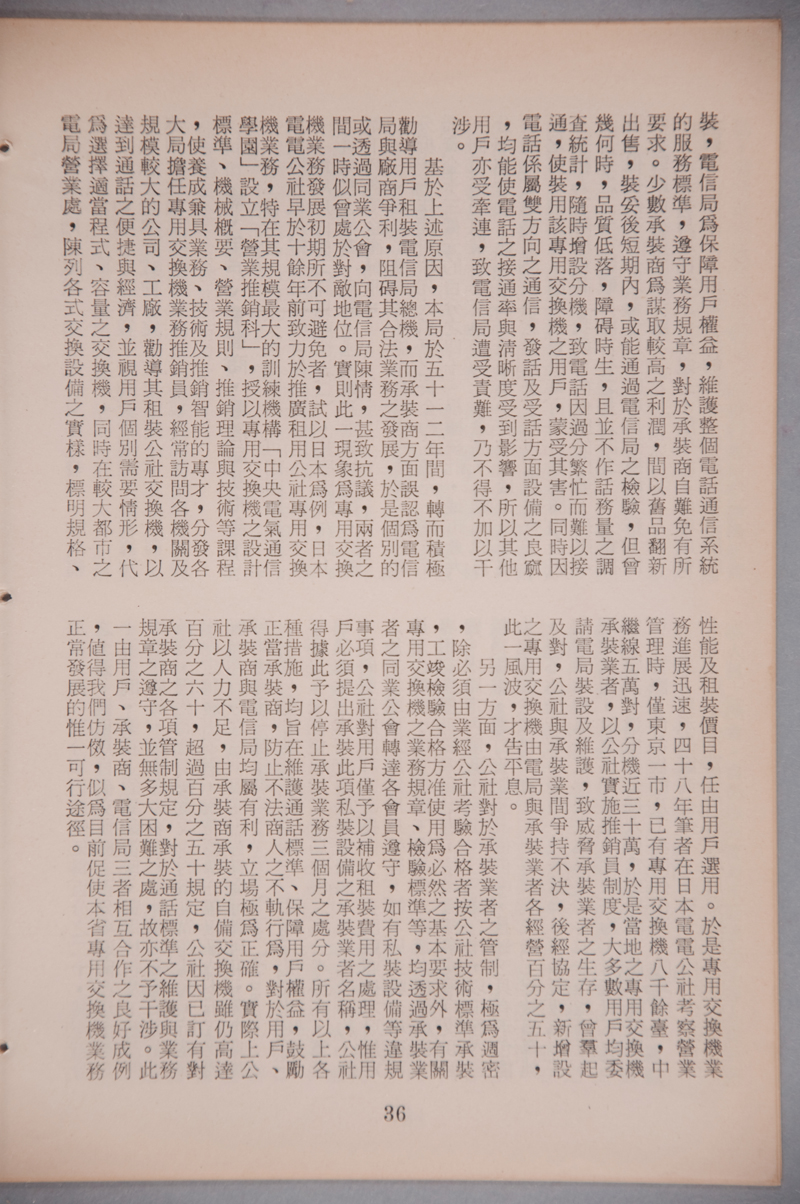 裝，電信局爲保障用戶權益，維護整個電話通信系統
的服務標準，遵守業務規章，對於承裝商自難免有所
要求。少數承裝商爲謀取較高之利潤，間以舊品翻新
出售，裝妥後短期內，或能通過電信局之檢驗，但曾
幾何時，品質低落，障碍時生，且並不作話務量之調
查統計，隨時增設分機，致電話因過分繁忙而難以接
通，使裝用該專用交換機之用戶，蒙受其害。同時因
電話係屬雙方向之通信，發話及受話方面設備之良窳
，均能使電話之接通率與淸晰度受到影響，所以其他
用戶亦受牽連，致電信局遭受責難，乃不得不加以干
涉。
基於上述原因，本局於五十一二年間，轉而積極
勸導用戶租裝電信局總機，而承裝商方面誤認爲電信
局與廠商爭利，阻碍其合法業務之發展，於是個別的
或透過同業公會，向電信局陳情，甚致抗議，兩者之
間一時似曾處於對敵地位。實則此一現象爲專用交換
機業務發展初期所不可避免者，試以日本爲例，日本
電電公社早於十餘年前致力於推廣租用公社專用交換
機業務，特在其規模最大的訓練機構「中央電氣通信
學園」設立「營業推銷科」，授以專用交換機之設計
標準、機械槪要、營業規則、推銷理論與技術等課程
，使養成兼具業務、技術及推銷智能的專才，分發各
大局擔任專用交換機業務推銷員，經常訪問各機關及
規模較大的公司、工廠，勸導其租裝公社交換機，以
達到通話之便捷與經濟，並視用戶個別需要情形，代
爲選擇適當程式、容量之交換機，同時在較大都市之
電局營業處，陳列各式交換設備之實樣，標明規格、
性能及租裝價目，任由用戶選用。於是專用交換機業
務進展迅速，四十八年筆者在日本電電公社考察營業
管理時，僅東京一市，已有專用交換機八千餘臺，中
繼線五萬對，分機近三十萬，於是當地之專用交換機
承裝業者，以公社實施推銷員制度，大多數用戶均委
請電局裝設及維護，致威脅承裝業者之生存，曾羣起
及對，公社與承裝業間爭持不決，後經協定，新增設
之專用交換機由電局與承裝業者各經營百分之五十，
此一風波，才告平息。
另一方面，公社對於承裝業者之管制，極爲週密
，除必須由業經公社考驗合格者按公社技術標準承裝
，工竣檢驗合格方准使用爲必然之基本要求外，有關
專用交換機之業務規章、檢驗標準等，均透過承裝業
者之同業公會轉達各會員遵守，如有私裝設備等違規
事項，公社對用戶僅予以補收租裝費用之處理，惟用
戶必須提出承裝此項私裝設備之承裝業者名稱，公社
得據此予以停止承裝業務三個月之處分。所有以上各
種措施，均旨在維護通話標準、保障用戶權益，鼓勵
正當承裝商，防止不法商人之不軌行爲，對於用戶、
承裝商與電信局均屬有利，立場極爲正確。實際上公
社以人力不足，由承裝商承裝的自備交換機雖仍高達
百分之六十，超過百分之五十規定，公社因已訂有對
承裝商之各項管制規定，對於通話標準之維護與業務
規章之遵守，並無多大困難之處，故亦不予干涉。此
一由用戶、承裝商、電信局三者相互合作之良好成例
，値得我們仿傚，似爲目前促使本省專用交換機業務
正常發展的惟一可行途徑。
36